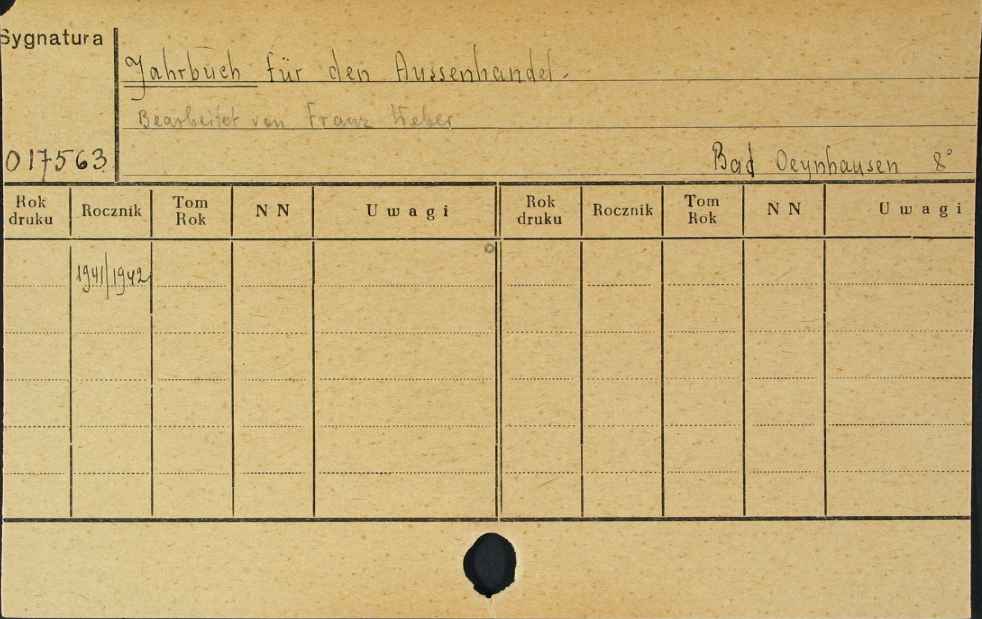 Sygnatura
Jahrbuch für den Aussenhandel.
Bearbeitet von Franz Weber
017563
Bad Oeynhausen 8°
Rok druku Rocznik Tom Rok NN Uwagi Rok druku Rocznik Tom Rok NN Uwagi
1941/1942